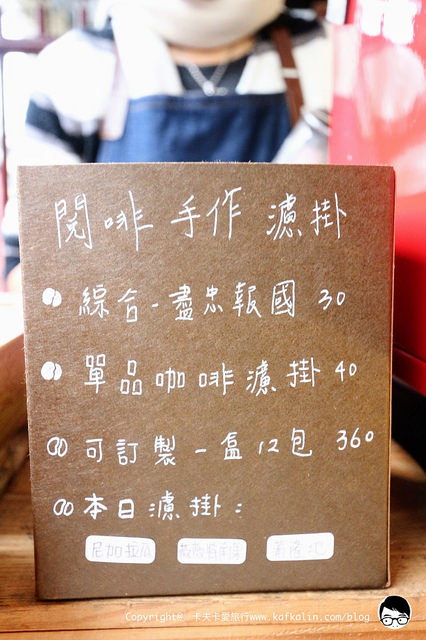 閱啡 手作 濾掛
綜合-盡忠報國 30
單品咖啡濾掛 40
可訂製一盒12包 360
本日濾掛:
尼加拉瓜
Copyright@ 卡夫卡愛旅行www.kafkalin.com/blog